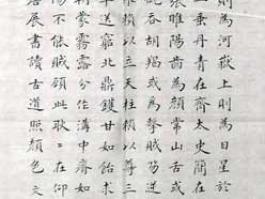 則為河嶽上則為日星於
一垂丹青在齊太史在
張睢陽齒為顏常山舌或
吞胡羯或為擊賊笏逆
賴以立天柱賴以尊三
車送窮北鼎鑊甘如飴求
蒙霧露分作溝中瘠如
陽不能賊顧此耿〻在仰
簷展書讀古道照顏色文